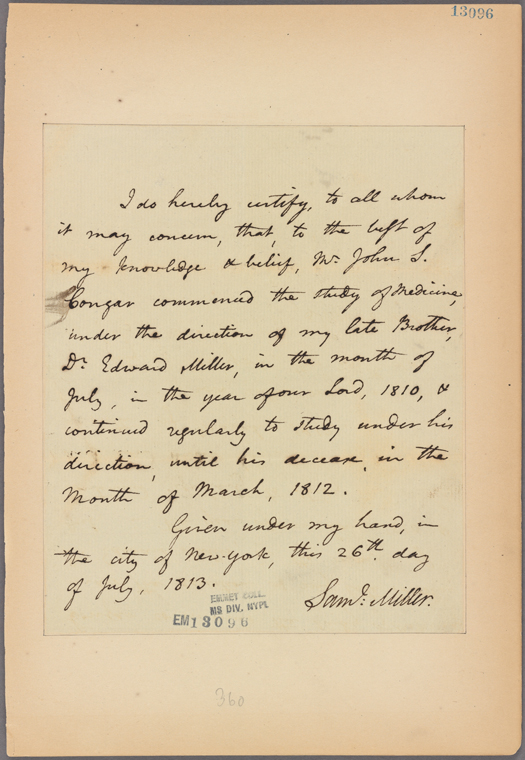 13096
I do hereby certify, to all whom
it may concern, that, to the best of
my knowledge & belief, Mr. John S.
Congar commenced the study of Medicine,
under the direction of my late Brother,
Dr. Edward Miller, in the month of
July, in the year of our Lord, 1810, &
continued regularly to study under his
direction, until his decease, in the
month of March, 1812.
Given under my hand, in
the city of New-York, this 26th. day
of July, 1813.
Saml. Miller.
EMMET COLL.
MS DIV. NYPL
EM13096
360